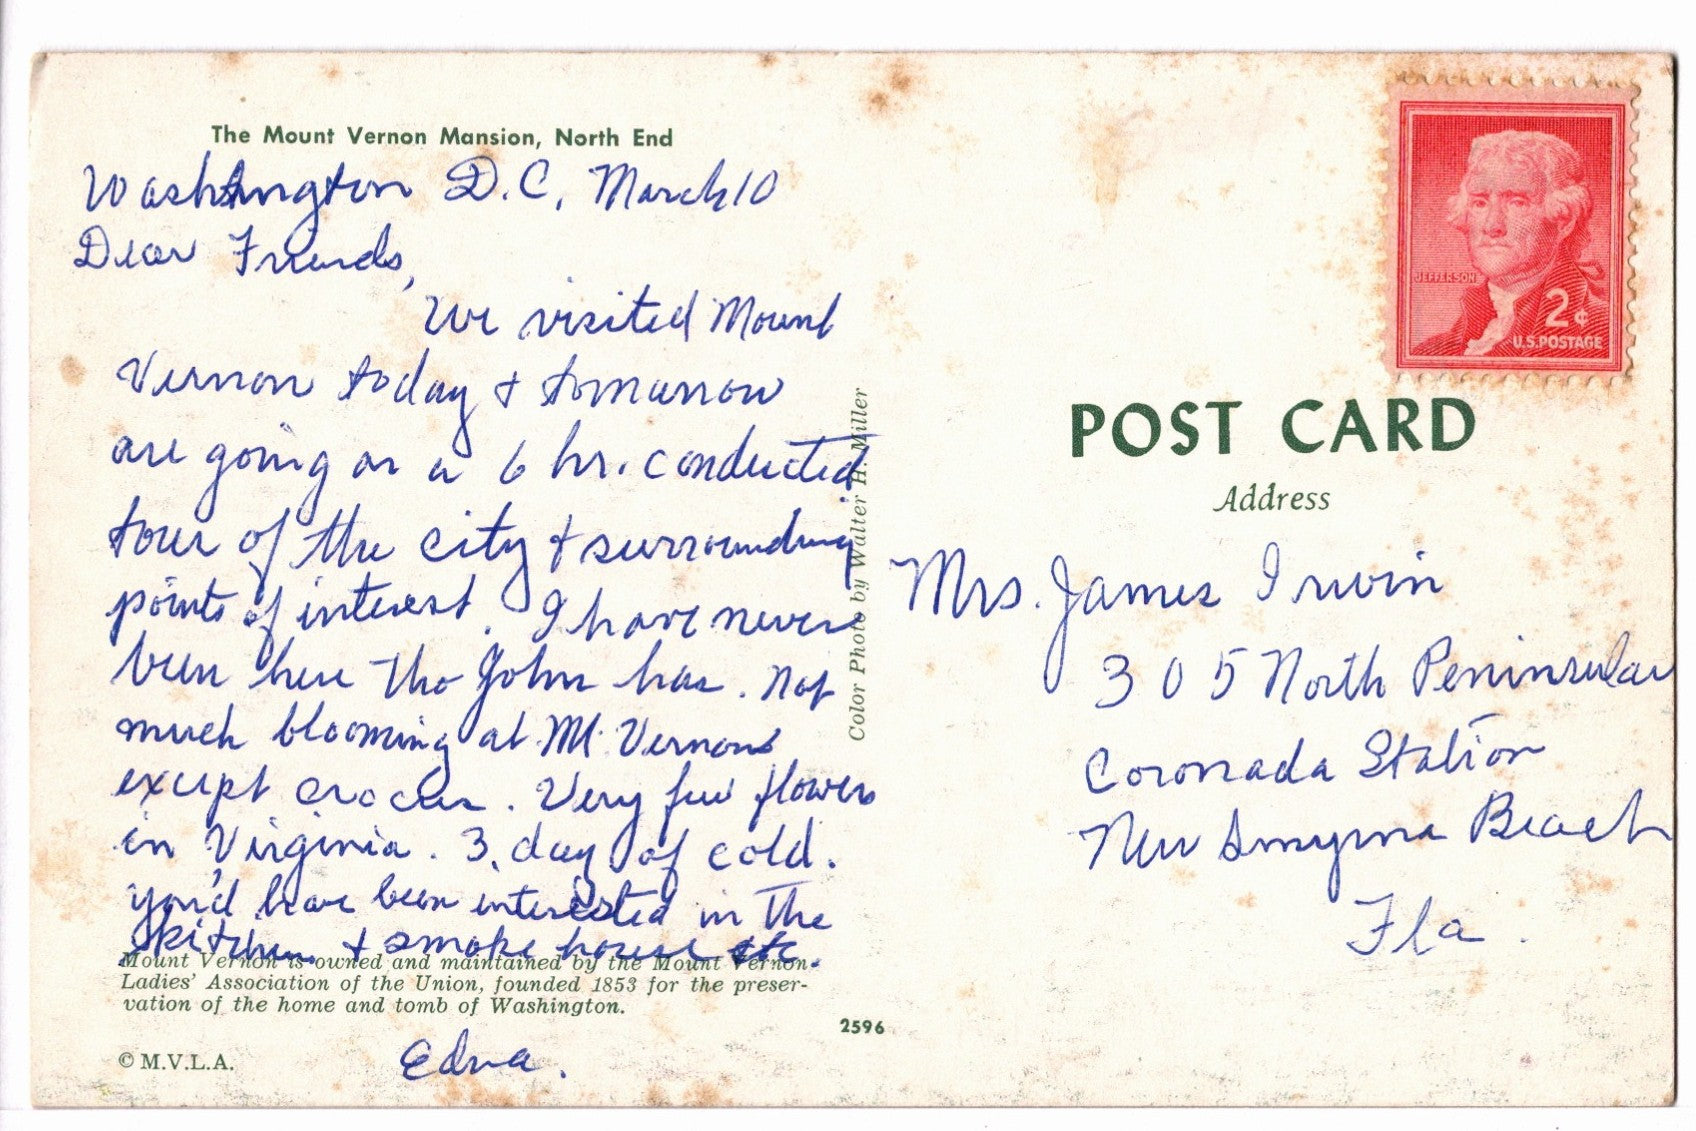 The Mount Vernon Mansion, North End
Washington D.C. March 10
Dear Friends,
We visited Mount
Vernon today & tomorrow
are going on a 6 hr. conducted
tour of the city & surrounding
points of interest. I have never
been here tho John has. Not
much blooming at Mt. Vernon
except crocus. Very few flowers
in Virginia. 3. day of cold.
You'd have been interested in the
kitchen & smoke house etc.
Mount Vernon is owned and maintained by the Mount Vernon
Ladies' Association of the Union, founded 1853 for the preser-
vation of the home and tomb of Washington.
Edna.
© M.V.L.A.
2596
Color Photo by Walter H. Miller
JEFFERSON
2¢
U.S. POSTAGE
POST CARD
Address
Mrs. James Irwin
305 North Peninsular
Coronada Station
New Smyrna Beach
Fla.